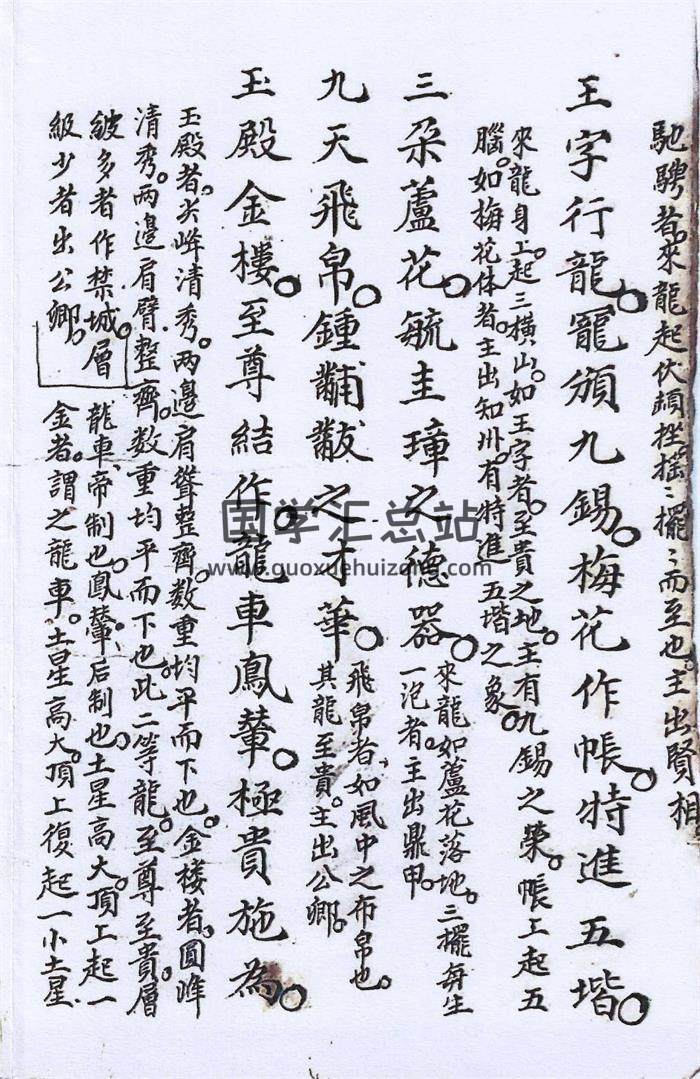 馳騁者。來龍起伏頓挫搖〻擺〻而至也。主出賢相
王字行龍。寵頒九錫。梅花作帳。特進五堦。
來龍身上。起三橫山。如王字者。至貴之地。主有九錫之榮。帳上起五
腦。如梅花体者。主出知州。有特進五堦之象。
三朵蘆花。毓圭璋之德器。
來龍如蘆花落地。三擺弁生
一泡者。主出鼎甲。
九天飛帛。鍾黼黻之才華。
飛帛者、如風中之布帛也。
其龍至貴。主出公卿。
玉殿金樓。至尊結作。龍車鳳輦。極貴施為。
玉殿者。尖峰清秀。兩邊肩聳整齊。数重均平而下也。金楼者。圓峰
清秀。两邊肩臂整齊。数重均平而下也。此二等龍。至尊至貴。層
級多者作禁城。層
級少者出公卿。
龍車、帝制也。鳳輦、后制也。土星高大。頂上起一
金者。謂之龍車。土星高大。頂上復起一小土星
国学汇总站
www.guoxuehuizong.com